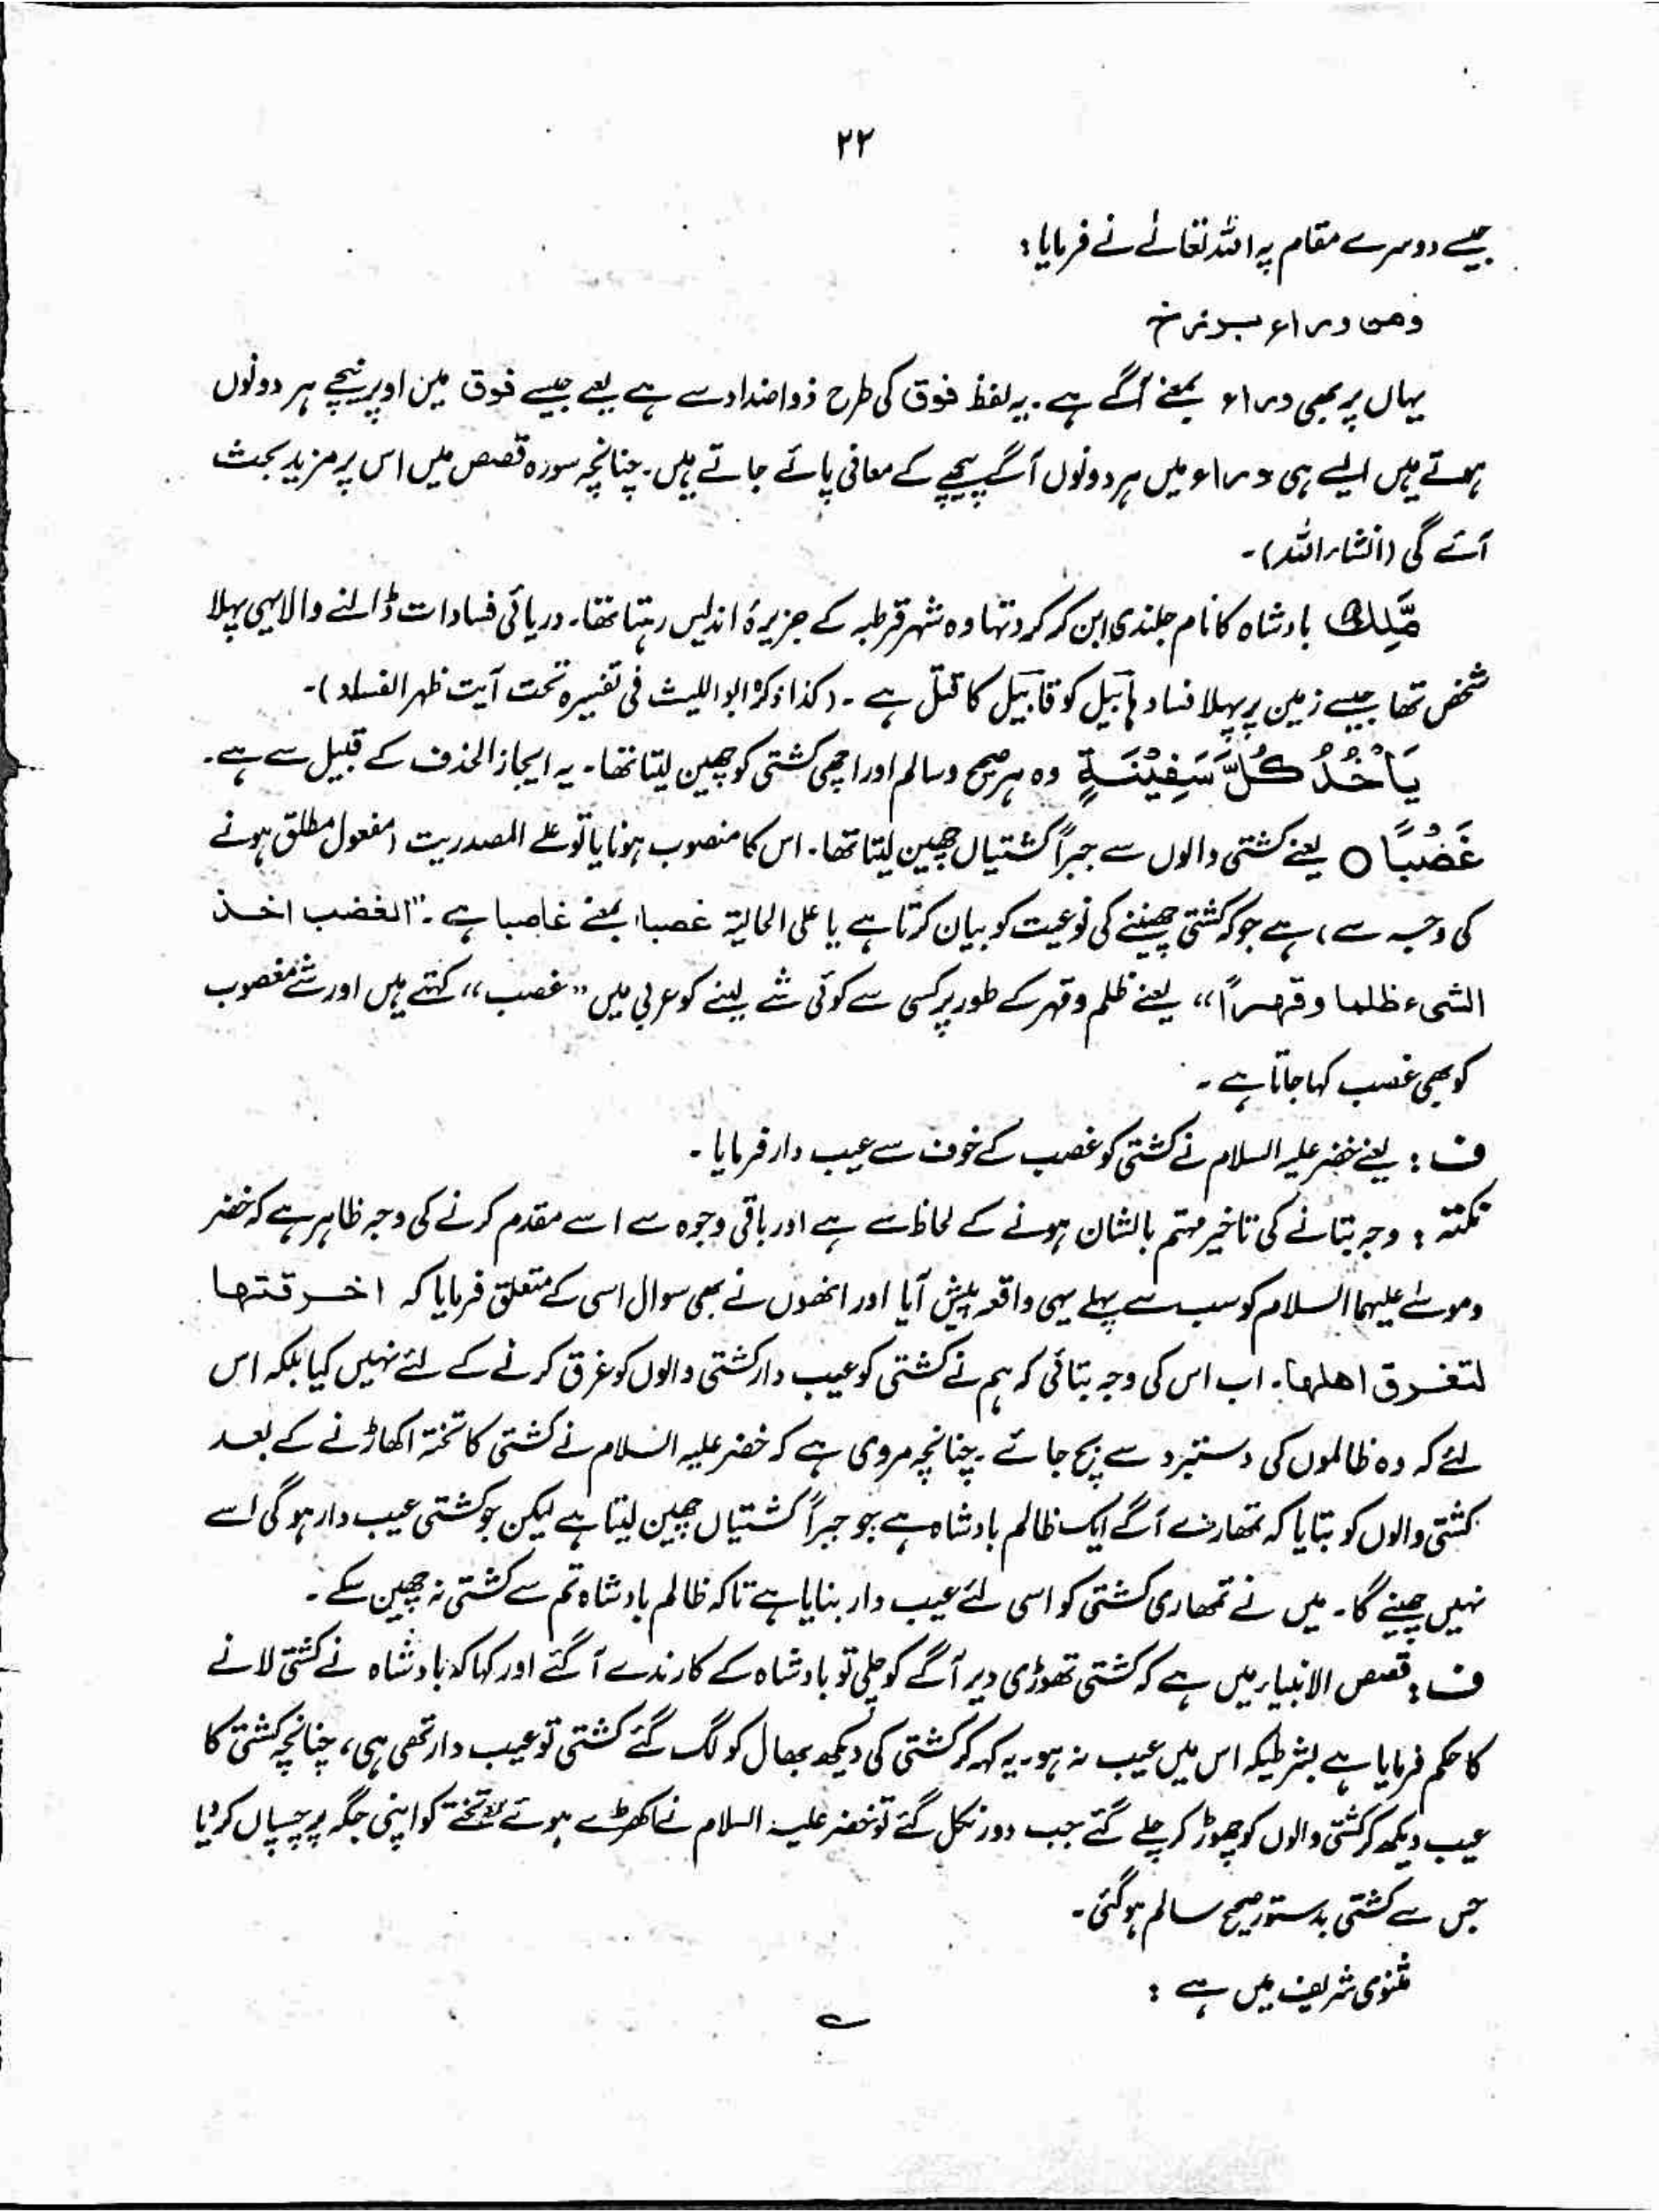 ۲۲
جیسے دوسرے مقام پر اللہ تعالےٰ نے فرمایا:
ومن وراء برزخ
یہاں پر بھی وراء بمعنے آگے ہے۔ یہ لفظ فوق کی طرح ذواضداد سے ہے یعنے جیسے فوق میں اوپر نیچے ہر دونوں
ہوتے ہیں ایسے ہی وراء میں ہر دونوں آگے پیچھے کے معانی پائے جاتے ہیں۔ چنانچہ سورہ قصص میں اس پر مزید بحث
آئے گی (انشاءاللہ)۔
مَّلِكٌ بادشاہ کا نام جلندی ابن کرکر دتھا وہ شہر قرطبہ کے جزیرۂ اندلس رہتا تھا۔ دریائی فسادات ڈالنے والا یہی پہلا
شخص تھا جیسے زمین پر پہلا فساد ہابیل کو قابیل کا قتل ہے۔ (کذا ذکرہٗ ابو اللیث فی تفسیرہ تحت آیت ظهر الفساد)۔
يَأْخُذُ كُلَّ سَفِيْنَةٍ وہ ہر صحیح و سالم اور اچھی کشتی کو چھین لیتا تھا۔ یہ ایجاز الحذف کے قبیل سے ہے۔
غَصْبًا ○ یعنے کشتی والوں سے جبراً کشتیاں چھین لیتا تھا۔ اس کا منصوب ہونا یا تو علے المصدریت (مفعول مطلق ہونے
کی وجہ سے) ہے جو کہ کشتی چھیننے کی نوعیت کو بیان کرتا ہے یا علی الحالیۃ غصبا بمعنے غاصبا ہے۔ "الغضب اخذ
الشیء ظلما وقهراً" یعنے ظلم و قہر کے طور پر کسی سے کوئی شے لینے کو عربی میں "غصب" کہتے ہیں اور شے مغصوب
کو بھی غصب کہا جاتا ہے۔
ف: یعنے خضر علیہ السلام نے کشتی کو غصب کے خوف سے عیب دار فرمایا۔
نکتہ: وجہ بتانے کی تاخیر مہتم بالشان ہونے کے لحاظ سے ہے اور باقی وجوہ سے اسے مقدم کرنے کی وجہ ظاہر ہے کہ خضر
و موسےٰ علیہما السلام کو سب سے پہلے یہی واقعہ پیش آیا اور انھوں نے بھی سوال اسی کے متعلق فرمایا کہ اخرقتها
لتغرق اهلها۔ اب اس کی وجہ بتائی کہ ہم نے کشتی کو عیب دار کشتی والوں کو غرق کرنے کے لئے نہیں کیا بلکہ اس
لئے کہ وہ ظالموں کی دستبرد سے بچ جائے۔ چنانچہ مروی ہے کہ خضر علیہ السلام نے کشتی کا تختہ اکھاڑنے کے بعد
کشتی والوں کو بتایا کہ تمھارے آگے ایک ظالم بادشاہ ہے جو جبراً کشتیاں چھین لیتا ہے لیکن جو کشتی عیب دار ہوگی اسے
نہیں چھینے گا۔ میں نے تمھاری کشتی کو اسی لئے عیب دار بنایا ہے تاکہ ظالم بادشاہ تم سے کشتی نہ چھین سکے۔
ف: قصص الانبیاء میں ہے کہ کشتی تھوڑی دیر آگے کو چلی تو بادشاہ کے کارندے آ گئے اور کہا کہ بادشاہ نے کشتی لانے
کا حکم فرمایا ہے بشرطیکہ اس میں عیب نہ ہو۔ یہ کہہ کر کشتی کی دیکھ بھال کو لگ گئے کشتی تو عیب دار تھی ہی، چنانچہ کشتی کا
عیب دیکھ کر کشتی والوں کو چھوڑ کر چلے گئے جب دور نکل گئے تو خضر علیہ السلام نے اکھڑے ہوئے تختے کو اپنی جگہ پر چسپاں کر دیا
جس سے کشتی بدستور صحیح سالم ہوگئی۔
مثنوی شریف میں ہے: